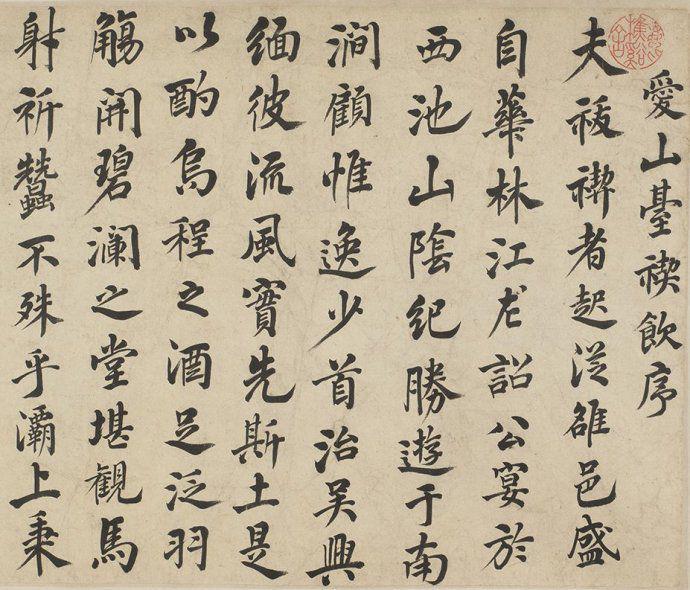 愛山臺禊飲序
夫祓禊者起從雒邑盛
自華林江左詔公宴於
西池山陰紀勝遊于南
澗顧惟逸少首治吳興
緬彼流風實先斯土是
以酌烏程之酒足泛羽
觴開碧瀾之堂堪觀馬
射祈蠶不殊乎灞上秉